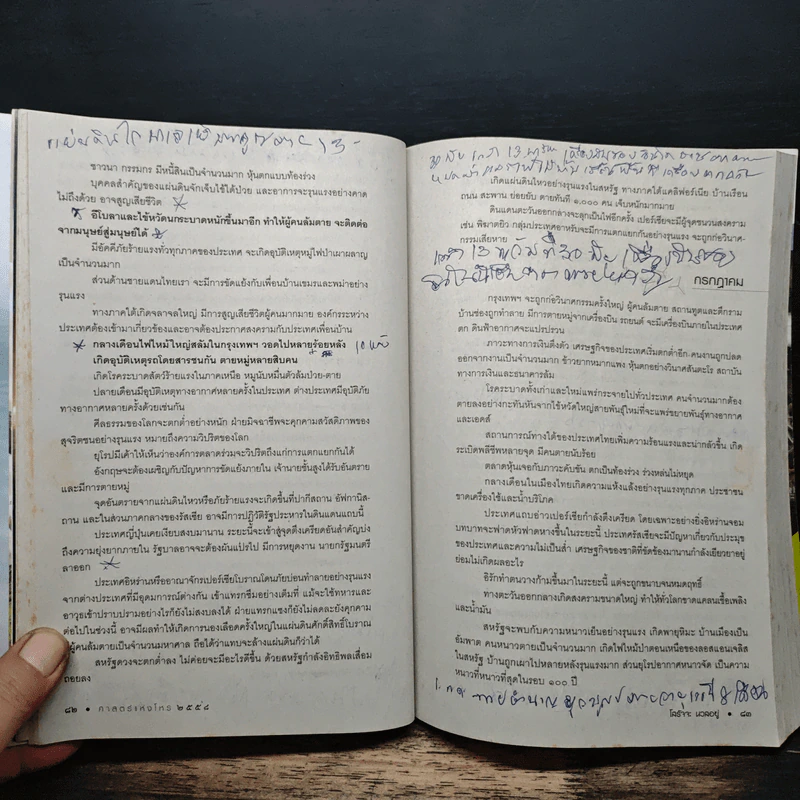 ชาวนา กรรมกร มีหนี้สินเป็นจำนวนมาก หุ้นตกแบบท้องร่วง
บุคคลสำคัญของแผ่นดินจักเจ็บไข้ได้ป่วย และอาการจะรุนแรงอย่างคาด
ไม่ถึงด้วย อาจสูญเสียชีวิต
อีโบลาและไข้หวัดนกระบาดหนักขึ้นมาอีก ทำให้ผู้คนล้มตาย จะติดต่อ
จากมนุษย์สู่มนุษย์ได้
มีอัคคีภัยร้ายแรงทั่วทุกภาคของประเทศ จะเกิดอุบัติเหตุหมู่ไฟป่าเผาผลาญ
เป็นจำนวนมาก
ส่วนด้านชายแดนไทยเรา จะมีการขัดแย้งกับเพื่อนบ้านเขมรและพม่าอย่าง
รุนแรง
ทางภาคใต้เกิดจลาจลใหญ่ มีการสูญเสียชีวิตผู้คนมากมาย องค์กรระหว่าง
ประเทศต้องเข้ามาเกี่ยวข้องและอาจต้องประกาศสงครามกับประเทศเพื่อนบ้าน
กลางเดือนไฟไหม้ใหญ่สลัมในกรุงเทพฯ วอดไปหลายร้อยหลัง
เกิดอุบัติเหตุรถโดยสารชนกัน ตายหมู่หลายสิบคน
เกิดโรคระบาดสัตว์ร้ายแรงในภาคเหนือ หมูนับหมื่นตัวล้มป่วย-ตาย
ปลายเดือนมีอุบัติเหตุทางอากาศหลายครั้งในประเทศ ต่างประเทศมีอุบัติภัย
ทางอากาศหลายครั้งด้วยเช่นกัน
ศีลธรรมของโลกจะตกต่ำอย่างหนัก ฝ่ายมิจฉาชีพจะคุกคามสวัสดิภาพของ
สุจริตชนอย่างรุนแรง หมายถึงความวิปริตของโลก
ยุโรปมีเค้าให้เห็นว่าองค์การตลาดร่วมจะวิปริตถึงแก่การแตกแยกกันได้
อังกฤษจะต้องเผชิญกับปัญหาการขัดแย้งภายใน เจ้านายชั้นสูงได้รับอันตราย
และมีการตายหมู่
จุดอันตรายจากแผ่นดินไหวหรือภัยร้ายแรงจะเกิดขึ้นที่ปากีสถาน อัฟกานิส-
ถาน และในส่วนภาคกลางของรัสเซีย อาจมีการปฏิวัติรัฐประหารในดินแดนแถบนี้
ประเทศญี่ปุ่นเคยเงียบสงบมานาน ระยะนี้จะเข้าสู่จุดตึงเครียดอันสำคัญบ่ง
ถึงความยุ่งยากภายใน รัฐบาลอาจจะต้องผันแปรไป มีการหยุดงาน นายกรัฐมนตรี
ลาออก
ประเทศอิหร่านหรืออาณาจักรเปอร์เซียโบราณโดนภัยบ่อนทำลายอย่างรุนแรง
จากต่างประเทศที่มีอุดมการณ์ต่างกัน เข้าแทรกซึมอย่างเต็มที่ แม้จะใช้ทหารและ
อาวุธเข้าปราบปรามอย่างไรก็ยังไม่สงบลงได้ ฝ่ายแทรกแซงก็ยังไม่ลดละยังคุกคาม
ต่อไปในช่วงนี้ อาจมีผลทำให้เกิดการนองเลือดครั้งใหญ่ในแผ่นดินศักดิ์สิทธิ์โบราณ
ผู้คนล้มตายเป็นจำนวนมหาศาล ถือได้ว่าแทบจะล้างแผ่นดินก็ว่าได้
สหรัฐดวงจะตกต่ำลง ไม่ค่อยจะมีอะไรดีขึ้น ด้วยสหรัฐกำลังอิทธิพลเสื่อม
ถอยลง
๘๒ • ศาสตร์แห่งโหร ๒๕๕๘
เกิดแผ่นดินไหวอย่างรุนแรงในสหรัฐ ทางภาคใต้แคลิฟอร์เนีย บ้านเรือน
ถนน สะพาน ย่อยยับ ตายทันที ๑,๐๐๐ คน เจ็บหนักมากมาย
ดินแดนตะวันออกกลางจะลุกเป็นไฟอีกครั้ง เปอร์เซียจะมีผู้จุดชนวนสงคราม
เช่น พิฆาตยิว กลุ่มประเทศอาหรับจะมีการแตกแยกกันอย่างรุนแรง จะถูกก่อวินาศ-
กรรมเสียหาย
กรกฎาคม
กรุงเทพฯ จะถูกก่อวินาศกรรมครั้งใหญ่ ผู้คนล้มตาย สถานทูตและตึกราม
บ้านช่องถูกทำลาย มีการตายหมู่จากเครื่องบิน รถยนต์ จะมีเครื่องบินภายในประเทศ
ตก ดินฟ้าอากาศจะแปรปรวน
ภาวะทางการเงินตึงตัว เศรษฐกิจของประเทศเริ่มตกต่ำอีก คนงานถูกปลด
ออกจากงานเป็นจำนวนมาก ข้าวยากหมากแพง หุ้นตกอย่างวินาศสันตะโร สถาบัน
ทางการเงินและธนาคารล้ม
โรคระบาดทั้งเก่าและใหม่แพร่กระจายไปทั่วประเทศ คนจำนวนมากต้อง
ตายลงอย่างกะทันหันจากไข้หวัดใหญ่สายพันธุ์ใหม่ที่จะแพร่ขยายพันธุ์ทางอากาศ
และเอดส์
สถานการณ์ทางใต้ของประเทศไทยเพิ่มความร้อนแรงและน่ากลัวขึ้น เกิด
ระเบิดพลีชีพหลายจุด มีคนตายนับร้อย
ตลาดหุ้นเจอกับภาวะคับขัน ตกเป็นท้องร่วง ร่วงหล่นไม่หยุด
กลางเดือนในเมืองไทยเกิดความแห้งแล้งอย่างรุนแรงทุกภาค ประชาชน
ขาดเครื่องใช้และน้ำบริโภค
ประเทศแถบอ่าวเปอร์เซียกำลังตึงเครียด โดยเฉพาะอย่างยิ่งอิหร่านจอม
บทบาทจะฟาดหัวฟาดหางขึ้นในระยะนี้ ประเทศรัสเซียจะมีปัญหาเกี่ยวกับประมุข
ของประเทศและความไม่เป็นส่ำ เศรษฐกิจของชาติที่ขัดข้องมานานกำลังเยียวยาอยู่
ย่อมไม่เกิดผลอะไร
อิรักทำตนวางก้ามขึ้นมาในระยะนี้ แต่จะถูกขนาบจนหมดฤทธิ์
ทางตะวันออกกลางเกิดสงครามขนาดใหญ่ ทำให้ทั่วโลกขาดแคลนเชื้อเพลิง
และน้ำมัน
สหรัฐจะพบกับความหนาวเย็นอย่างรุนแรง เกิดพายุหิมะ บ้านเมืองเป็น
อัมพาต คนหนาวตายเป็นจำนวนมาก เกิดไฟไหม้ป่าตอนเหนือของลอสแอนเจลิส
ในสหรัฐ บ้านถูกเผาไปหลายหลังรุนแรงมาก ส่วนยุโรปอากาศหนาวจัด เป็นความ
หนาวที่หนาวที่สุดในรอบ ๑๐๐ ปี
โสรัจจะ นวลอยู่ • ๘๓